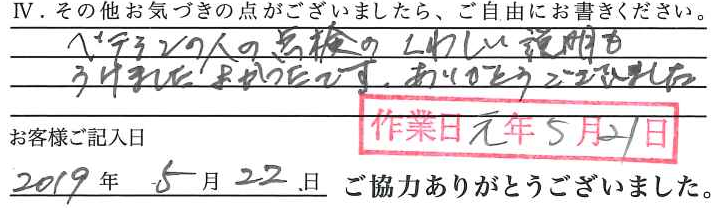 Ⅳ．その他お気づきの点がございましたら、ご自由にお書きください。
ベテランの人の点検のくわしい説明も
うけました よかったです。ありがとうございました
作業日 元年5月21日
お客様ご記入日
2019年 5月22日 ご協力ありがとうございました。